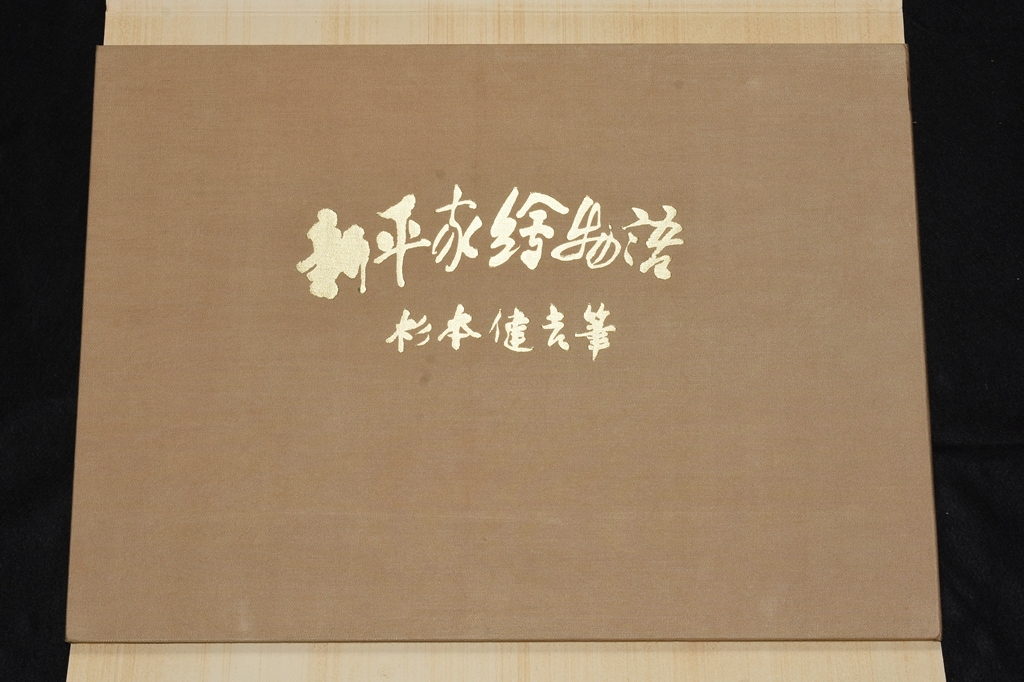 新平家絵物語
杉本健吉筆